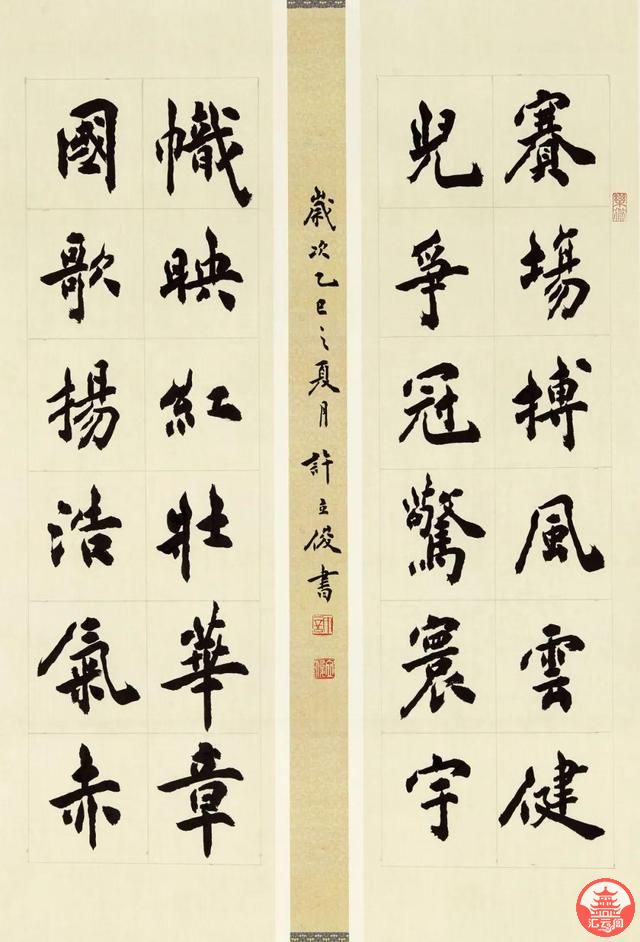 賽場搏風雲健
兒爭冠驚寰宇
國歌揚浩氣赤
幟映紅壯華章
歲次乙巳之夏月許立俊書
汇云阁